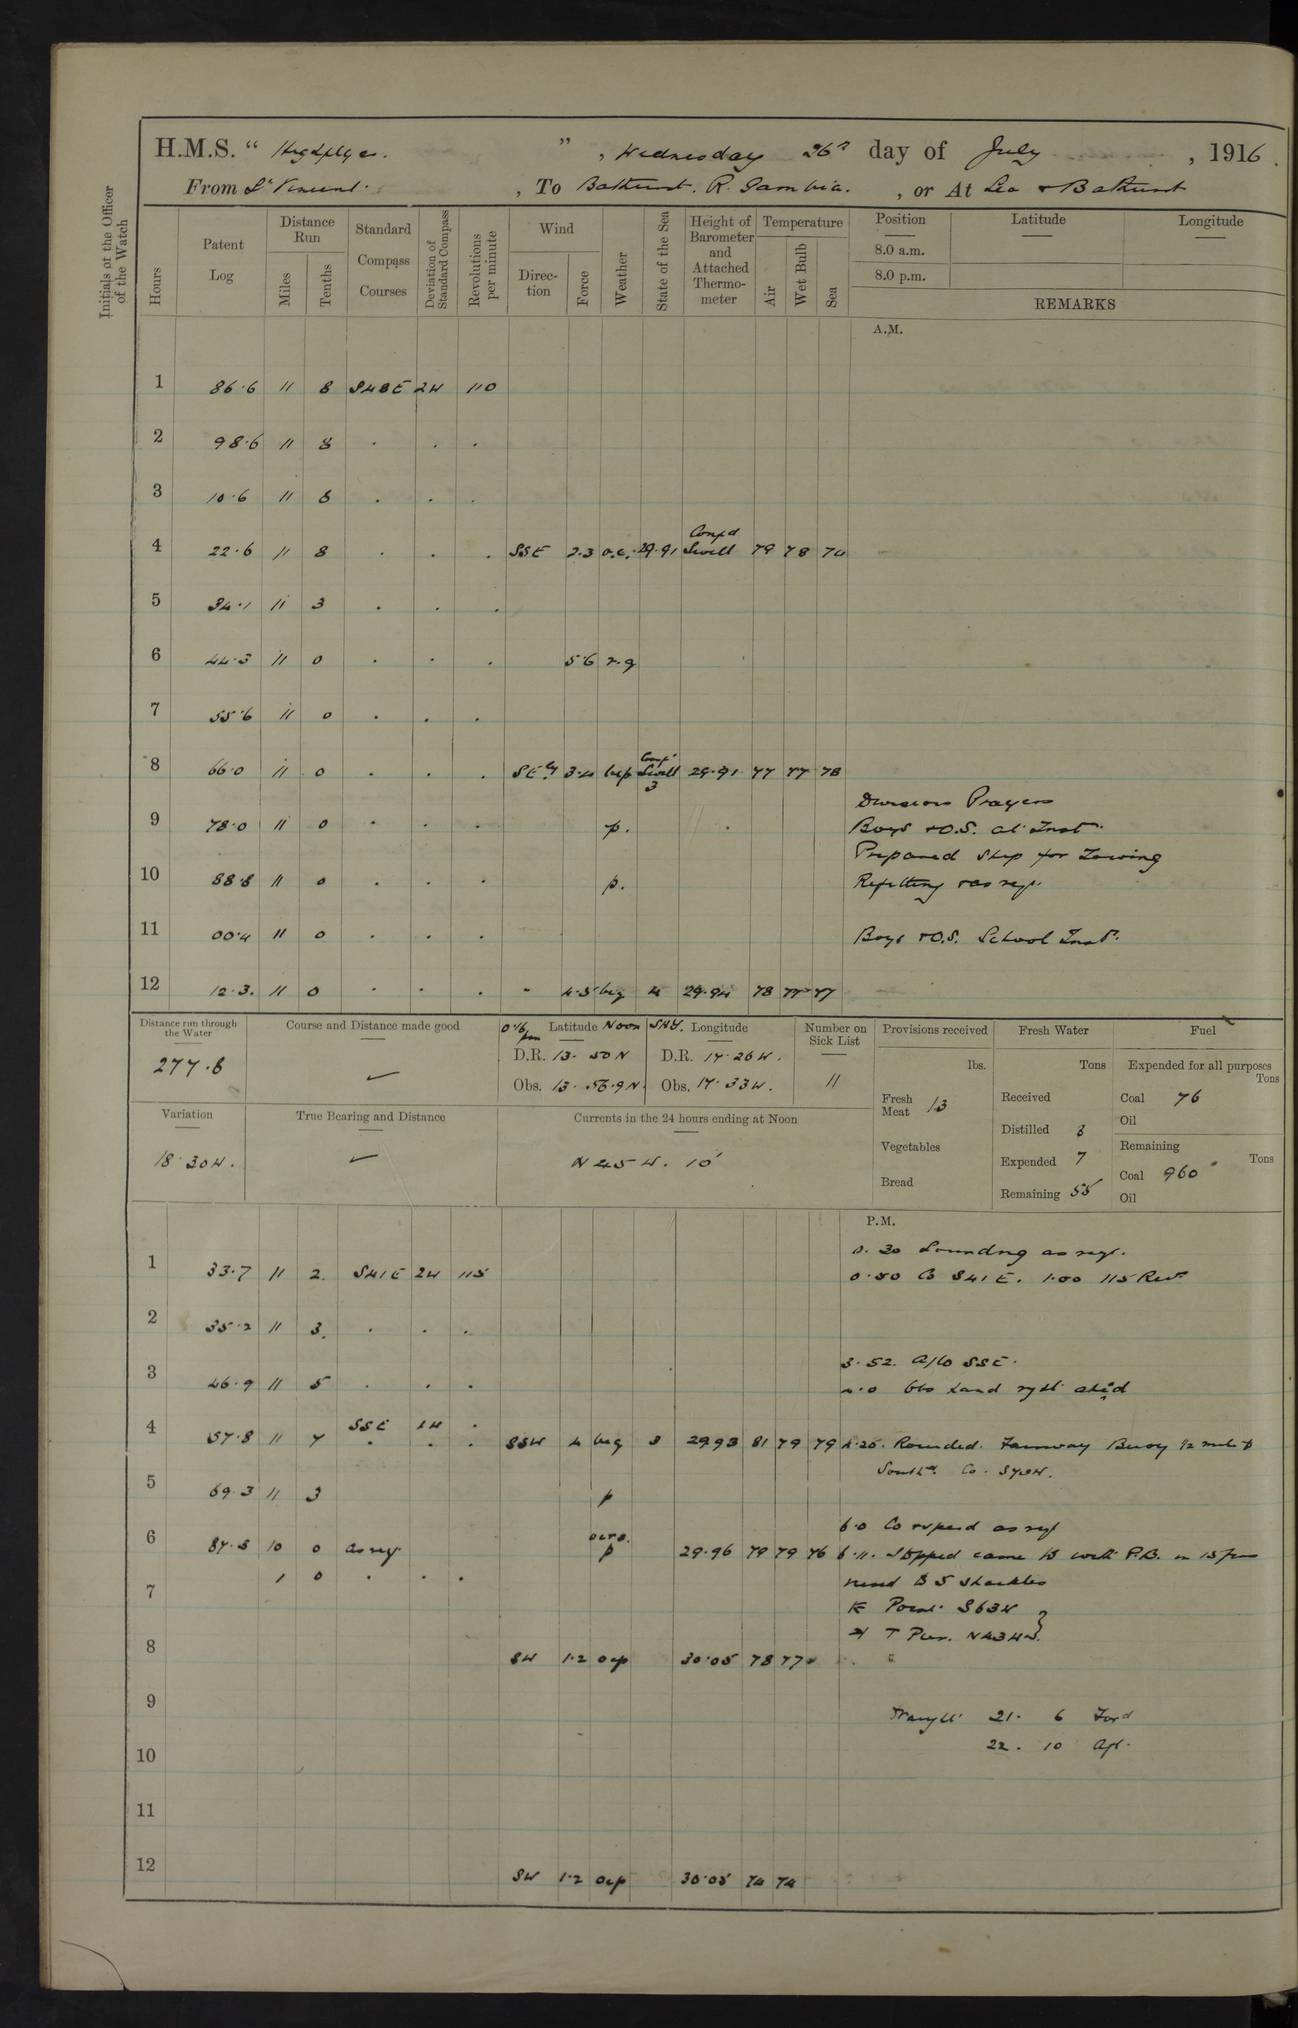 H.M.S. “ Highflyer. ” , Wednesday 26th day of July , 1916.
From St Vincent. , To Bathurst. R. Gambia. , or At Sea & Bathurst
Initials of the Officer of the Watch
Hours
Patent Log
Distance Run
Miles
Tenths
Standard Compass Courses
Deviation of Standard Compass
Revolutions per minute
Wind
Direction
Force
Weather
State of the Sea
Height of Barometer and Attached Thermometer
Temperature
Air
Wet Bulb
Sea
Position
Latitude
Longitude
8.0 a.m.
8.0 p.m.
REMARKS
A.M.
1 86.6 11 8 S48E 2W 110
2 98.6 11 8 . . .
3 10.6 11 8 . . .
4 22.6 11 8 . . . SSE 2.3 o.c. 29.91 Conf'd Swell 79 78 74
5 34.1 11 3 . . .
6 44.3 11 0 . . . 5.6 r.q
7 55.6 11 0 . . .
8 66.0 11 0 . . . SE'ly 3.4 bcp Conf' Swell 3 29.91 77 77 78
Divisions Prayers
9 78.0 11 0 . . . p. Boys & O.S. at Inst.
Prepared Ship for Towing
10 88.8 11 0 . . . p. Refitting & as reqr.
11 00.4 11 0 . . . Boys & O.S. School Inst.
12 12.3. 11 0 . . . " 4.5 bcq 4 29.94 78 77 77
Distance run through the Water
277.6
Course and Distance made good
✓
Latitude Noon
D.R. 13. 50 N
Obs. 13. 56.9 N.
Longitude
D.R. 17. 26 W.
Obs. 17. 33 W.
Number on Sick List
11
Provisions received
lbs.
Fresh Meat 13
Vegetables
Bread
Fresh Water
Tons
Received
Distilled 3
Expended 7
Remaining 55
Fuel
Expended for all purposes
Tons
Coal 76
Oil
Remaining
Tons
Coal 960
Oil
Variation
18. 30 W.
True Bearing and Distance
✓
Currents in the 24 hours ending at Noon
N 45 W. 10'
P.M.
0. 30 Sounding as reqr.
1 33.7 11 2. S41E 2W 115 0.50 Co S41E. 1.00 115 Rev.
2 35.2 11 3. . . .
3.52. A/Co SSE.
3 46.9 11 5 . . . 4.0 Obs land right ahead
SSE 1W .
4 57.8 11 7 . . . SSW 4 bcq 3 29.93 81 79 79 4.25. Rounded Fairway Buoy 1/2 mile to
South'd. Co.
5 69.3 11 3 p
6.0 Co & speed as reqr
6 87.5 10 0 as reqr. ocro. p 29.96 79 79 76 6.11. Stopped came to with P.B. in 15 fms
1 0 . . . veered to 5 shackles
7
Point. S63W
T Pier. N43W
8 SW 1.2 ocp 30.05 78 77
9
21. 6
10 22. 10
11
12 SW 1.2 ocp 30.05 74 74